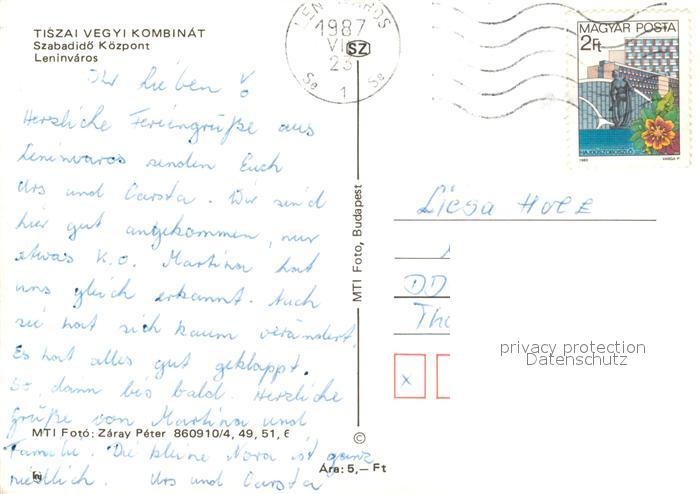 TISZAI VEGYI KOMBINÁT
Szabadidő Központ
Leninváros
Ihr Lieben
Herzliche Feriengrüße aus
Leninvaros senden Euch
Urs und Carsta. Wir sind
hier gut angekommen, nur
etwas K.O. Martina hat
uns gleich erkannt. Auch
sie hat sich kaum verändert.
Es hat alles gut geklappt.
So, dann bis bald. Herzliche
Grüße von Martina und
Familie. Die kleine Nora ist ganz
niedlich. Urs und Carsta
MTI Fotó: Záray Péter 860910/4, 49, 51, 6
Ára: 5,— Ft
MTI Foto, Budapest
©
SZ
1987
VI
23
1
MAGYAR POSTA
2Ft
HAJDÚSZOBOSZLÓ
1983 VARGA P.
DD
Tho
x
privacy protection
Datenschutz